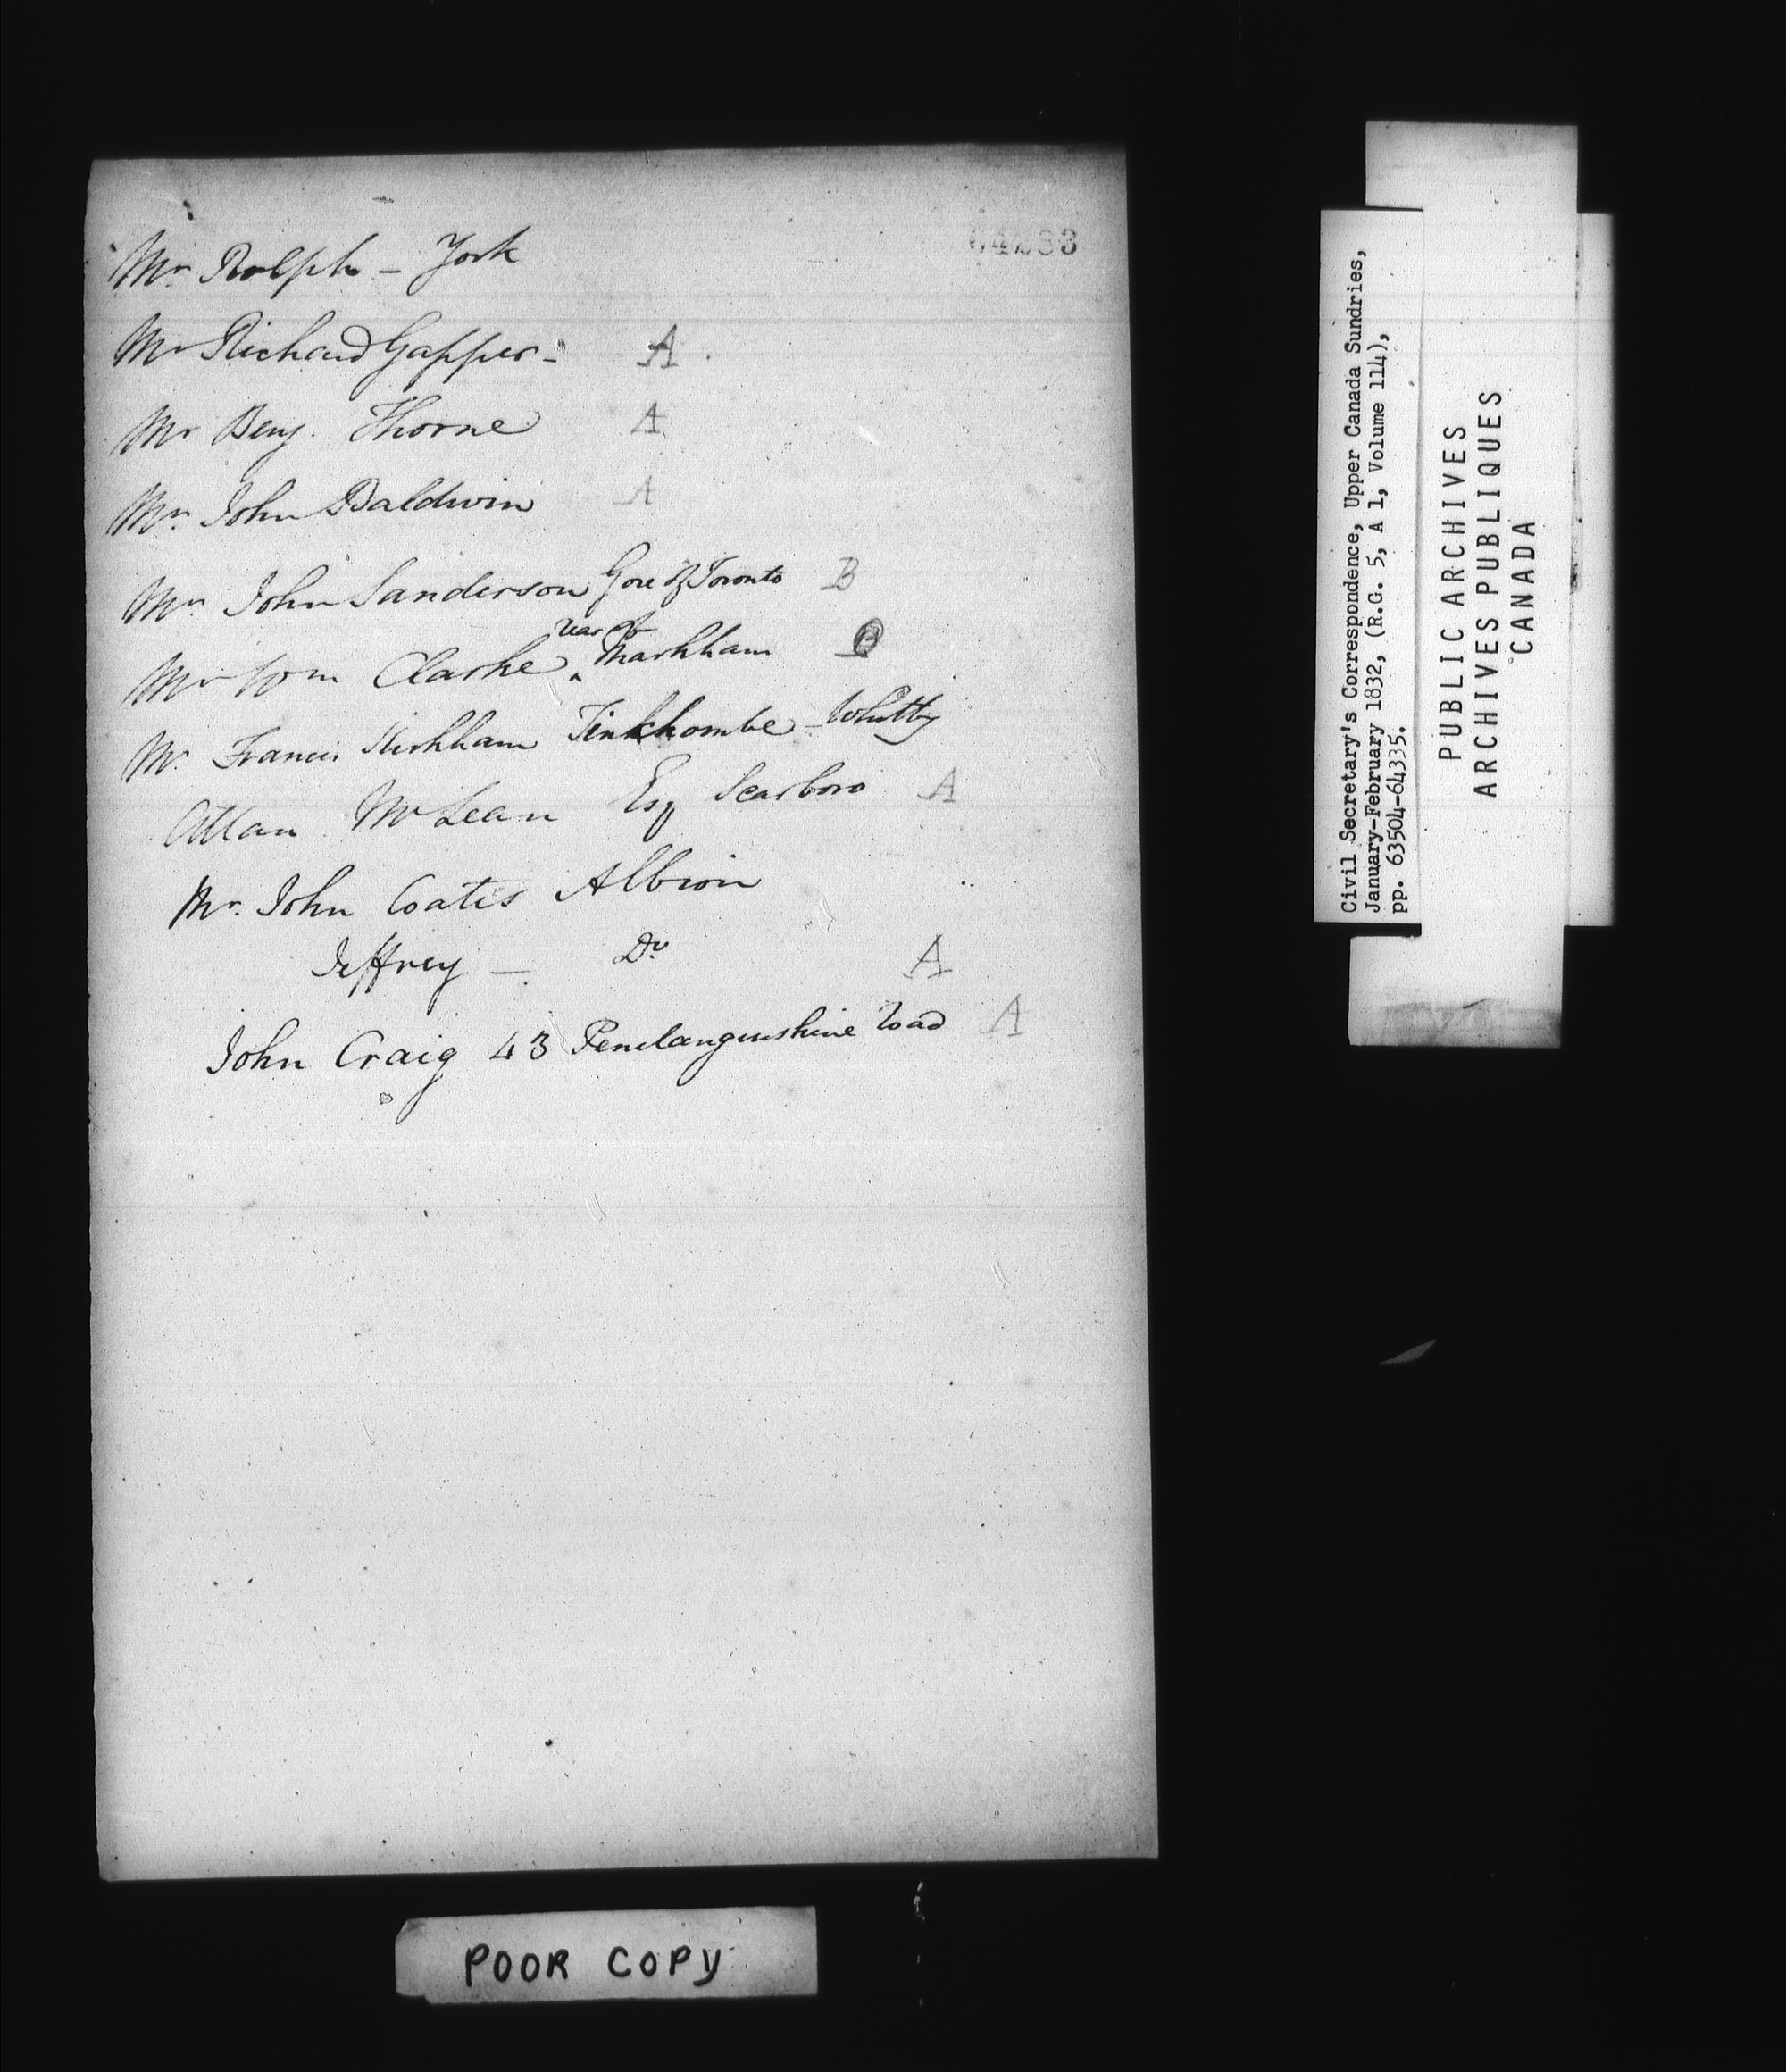 Mr Rolph – York
Mr Richard Gapper – A
Mr Benj. Thorne A
Mr. John Baldwin A
Mr John Sanderson Gore of Toronto B
Mr Wm Clarke, rear of Markham
Mr. Francis Kirkham Tinkhombe – Whitby
Allan McLean Esq Scarboro A
Mr. John Coates Albion
Jeffrey — Do A
John Craig 43 Penetanguishine road A
Civil Secretary's Correspondence, Upper Canada Sundries,
January-February 1832, (R.G. 5, A 1, Volume 114),
pp. 63504-64335.
PUBLIC ARCHIVES
ARCHIVES PUBLIQUES
CANADA
POOR COPY